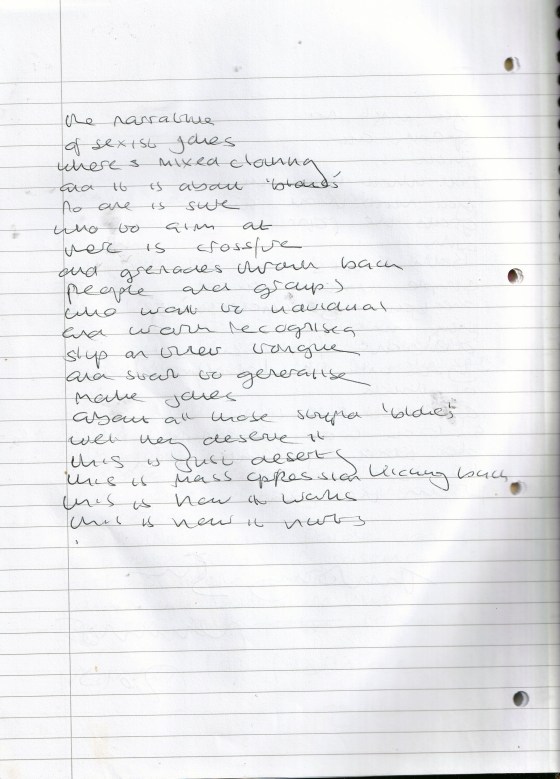 the narrative
of sexist jokes
where's mixed
and it is about 'blokes'
no one is sure
who to aim at
there is crossfire
and grenades thrown back
people and group's
who want to
and recognising
slip on their tongue
and start to generalise
make jokes
about all those stupid 'blokes'
well they deserve it
this is just deserts
this is mass oppression kicking back
this is how it works
this is how it hurts